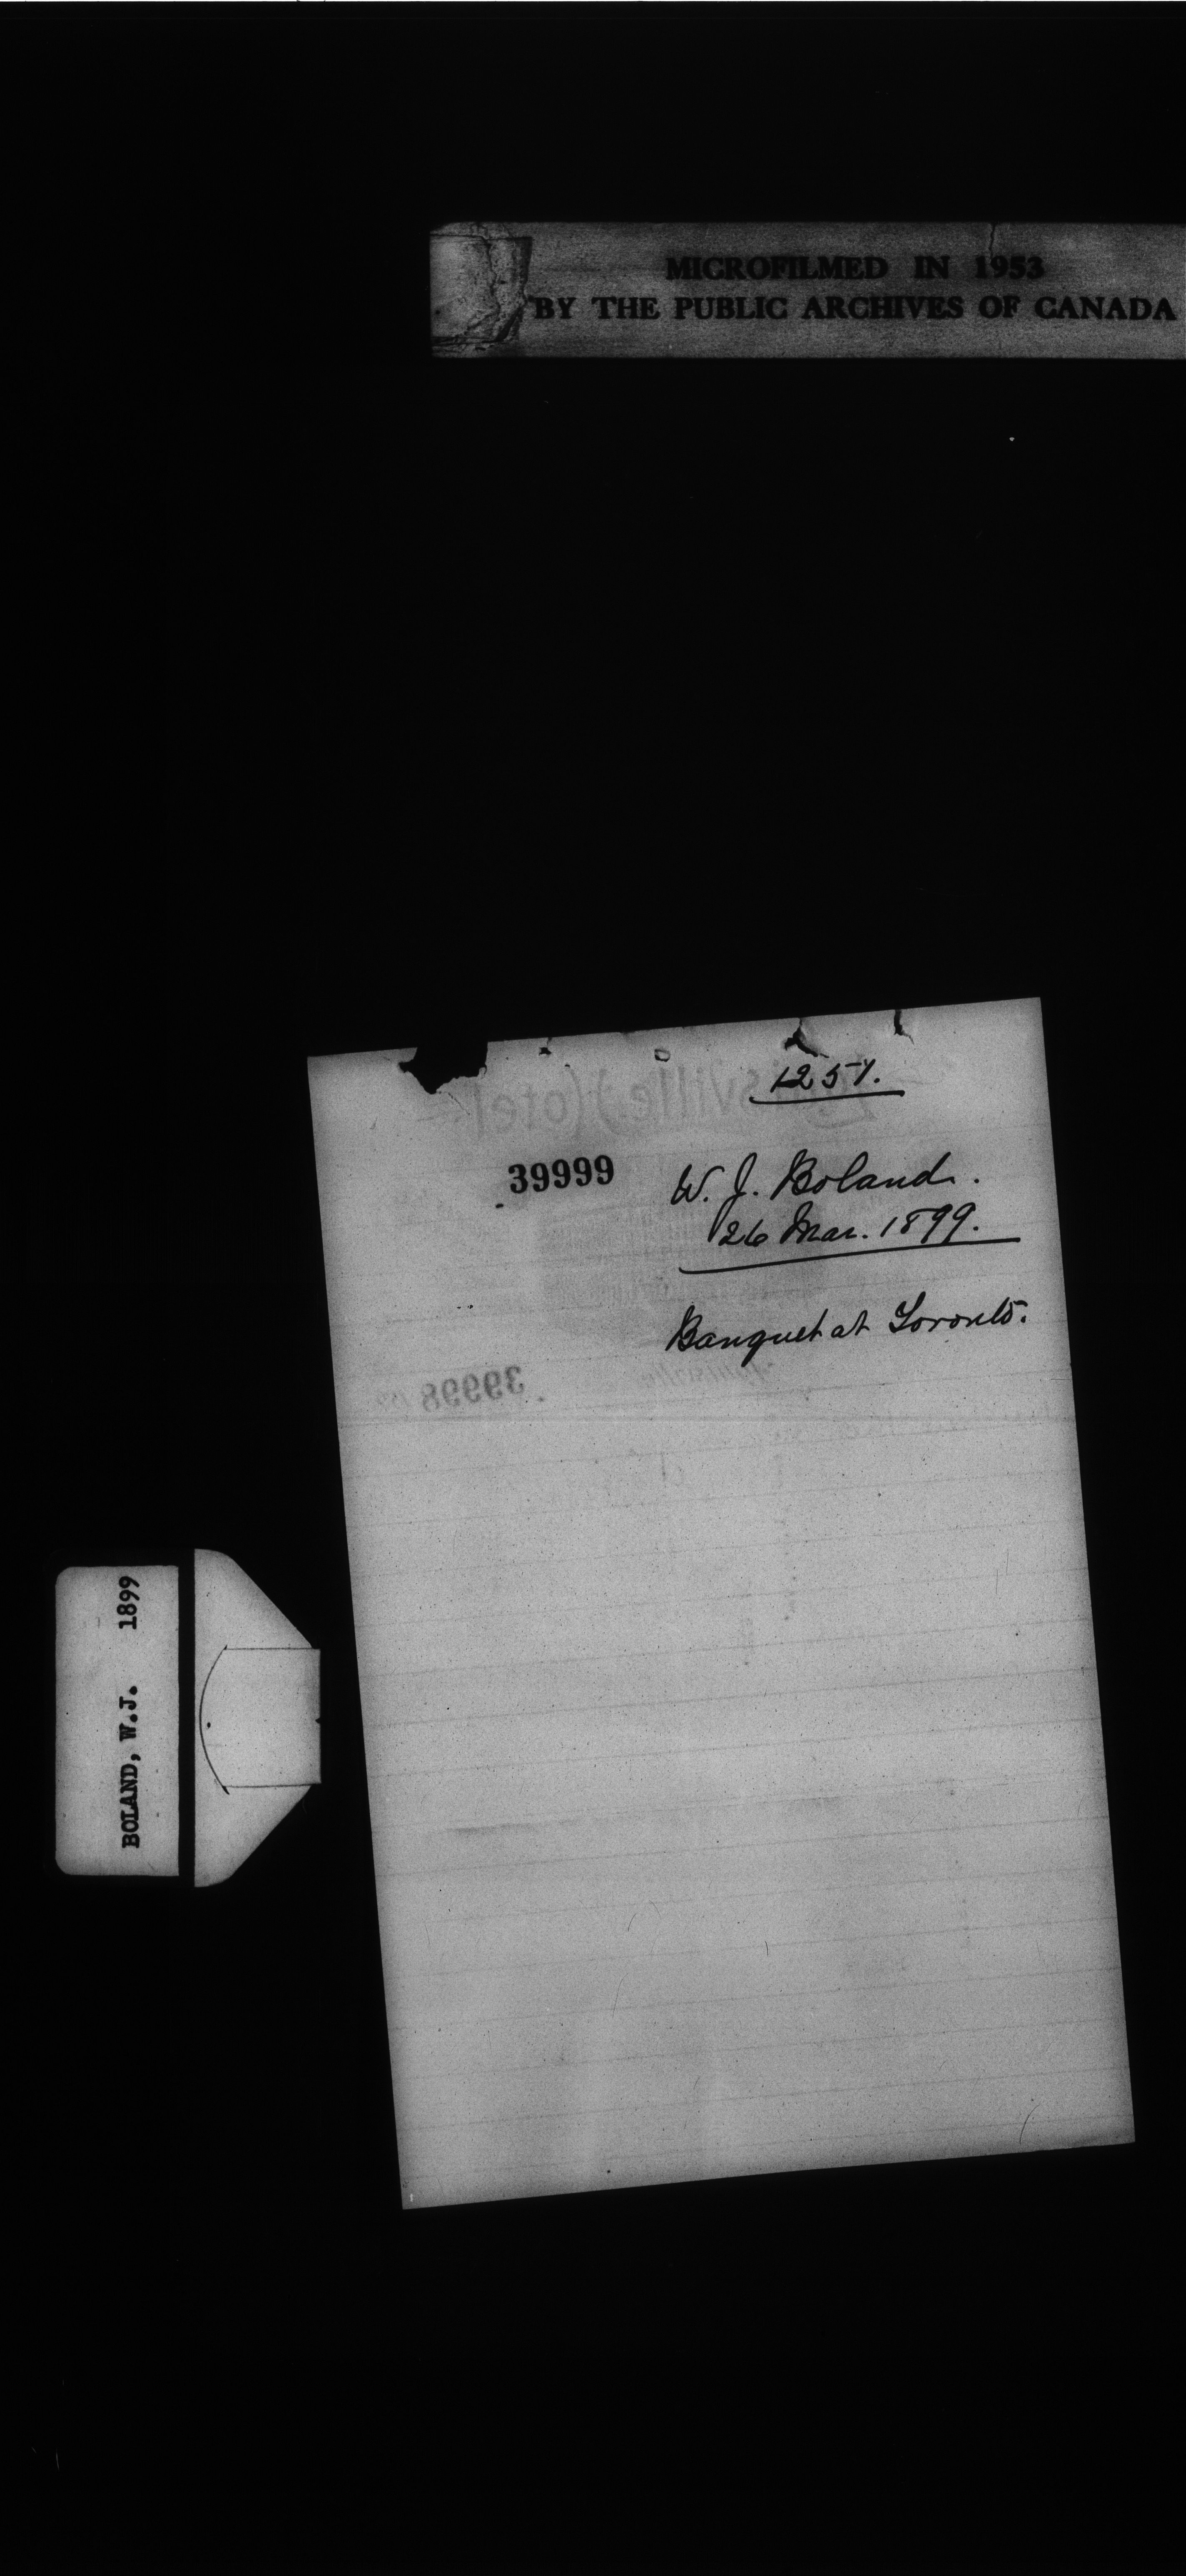 MICROFILMED IN 1953
BY THE PUBLIC ARCHIVES OF CANADA
1251.
39999
W. J. Boland.
26 Mar. 1899.
Banquet at Toronto.
39998
BOLAND, W.J. 1899